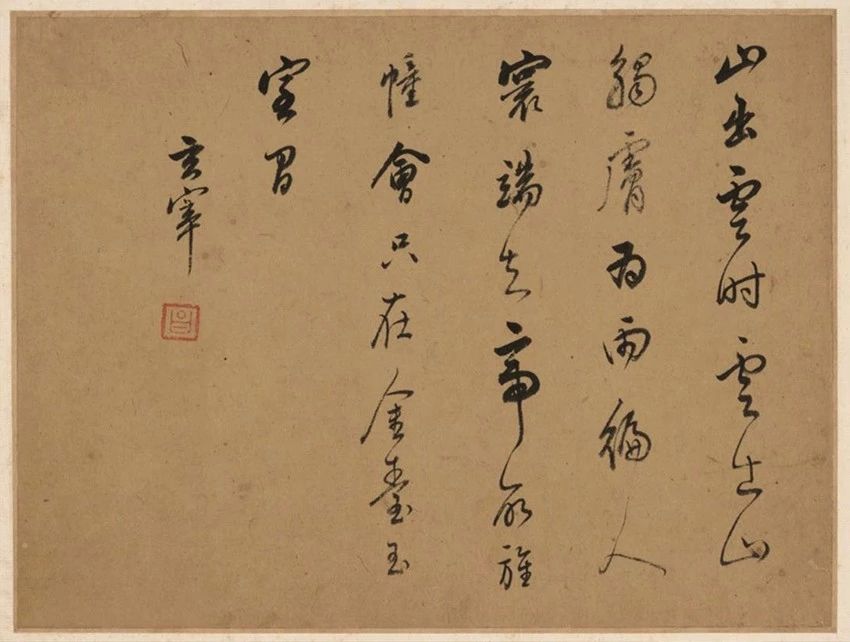 山出雲時雲出山
觸膚為雨徧人
寰端知帝所旌
幢會只在金臺玉
室間
玄宰
昌